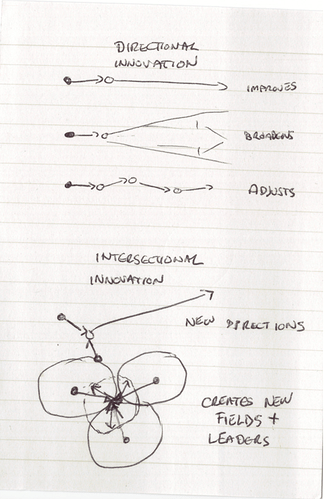 DIRECTIONAL
INNOVATION
IMPROVES
BROADENS
ADJUSTS
INTERSECTIONAL
INNOVATION
NEW DIRECTIONS
CREATES NEW
FIELDS +
LEADERS